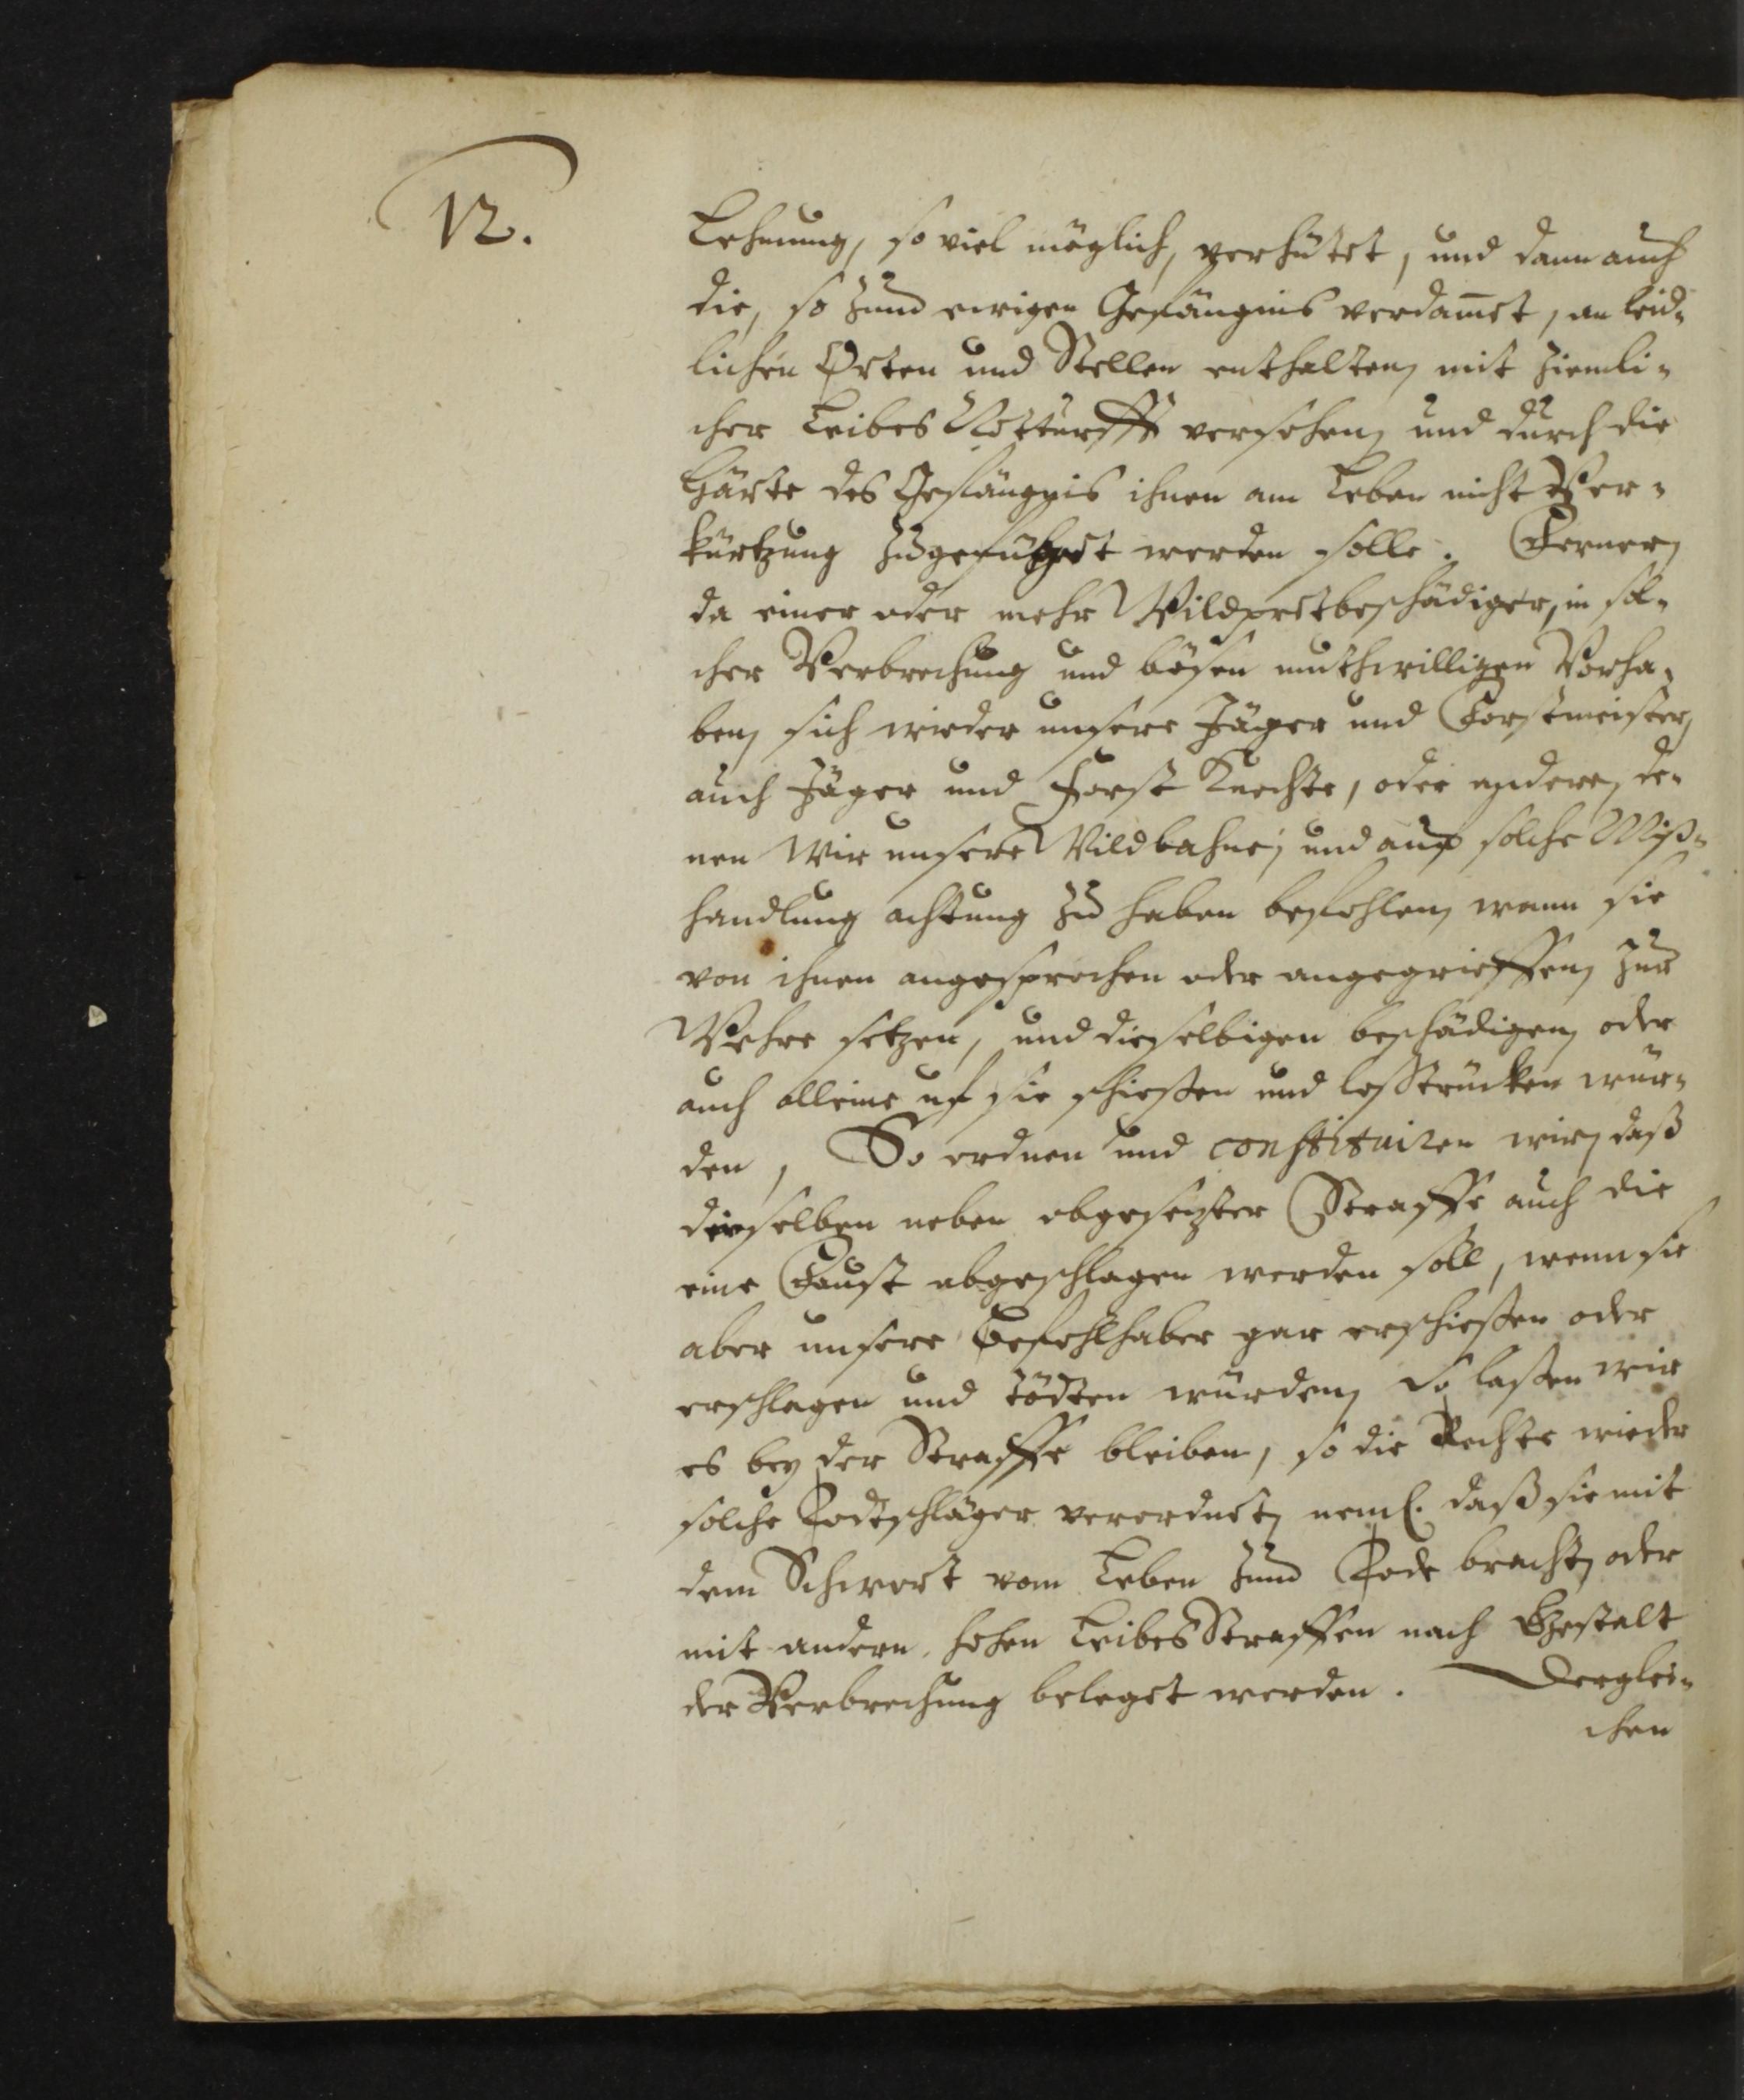 12.
Lehmung, so viel möglich, verhütet, und dann auch
die, so zum ewigen Gefängnis verdam̄et, an leid⸗
lichen Orten und Stellen enthalten, mit ziemli⸗
cher Leibes Notturfft versehen, und durch die
Härte des Gefängnis ihnen am Leben nicht Ver⸗
kürtzung zugefüget werden solle. Ferner,
da einer oder mehr Wildpretbeschädiger, in sol⸗
cher Verbrechung und bösen muthwilligen Vorha⸗
ben, sich wieder unsere Jäger und Forstmeister,
auch Jäger und Forst Knechte, oder andere, de⸗
nen Wir unsere Wildbahne, und auf solche Miß⸗
handlung achtung zu haben befohlen, wann sie
von ihnen angesprochen oder angegrieffen, zur
Wehre setzen, und dieselbigen beschädigen, oder
auch alleine uf sie schießen und loßtrücken wür⸗
den, So ordnen und constituiren wir, daß
dieselben neben obgesetzter Straffe auch die
eine Faust abgeschlagen werden soll, wenn sie
aber unsere Befehlhaber gar erschießen oder
erschlagen und tödten würden, So laßen wir
es bey der Straffe bleiben, so die Rechte wieder
solche Todtschläger verordnet, neml. daß sie mit
dem Schwert vom Leben zum Tode bracht, oder
mit andern hohen Leibes Straffen nach Gestalt
der Verbrechung beleget werden. Derglei⸗
chen